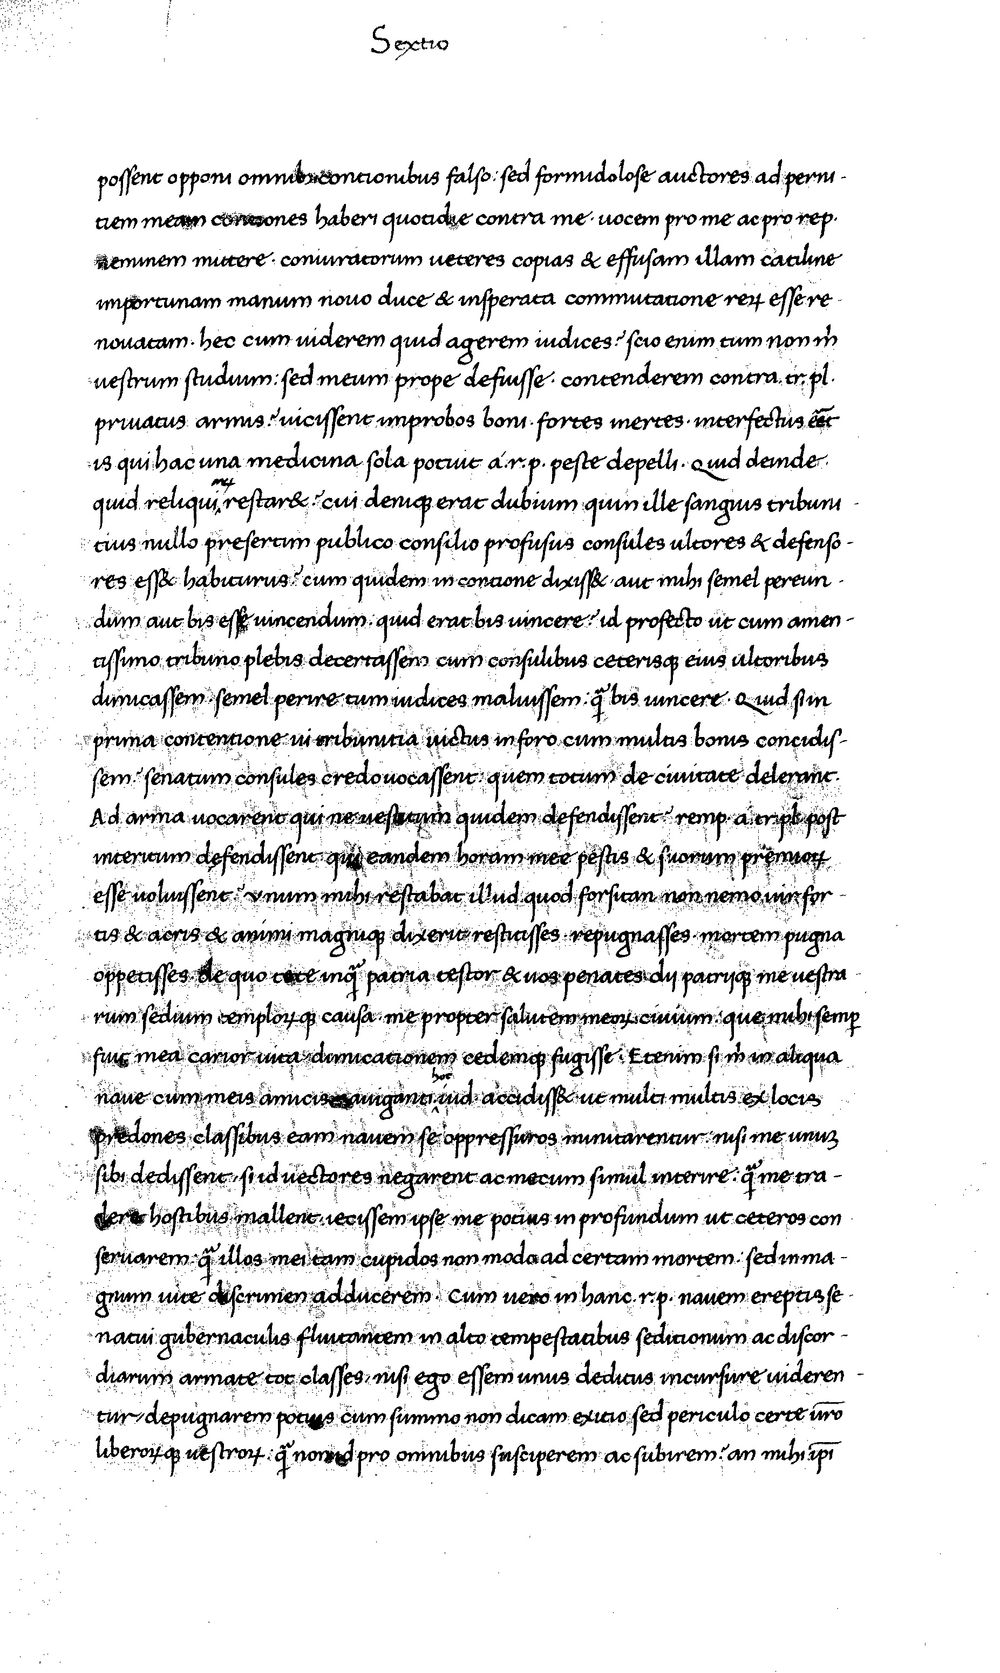 Sextio
possent opponi omnibus contionibus falso: sed formidolose auctores ad perni-
tiem meam contiones haberi quotidie contra me· uocem pro me ac pro rep·
neminem mittere· coniuratorum ueteres copias & effusam illam catiline
importunam manum nouo duce & insperata commutatione reꝝ esse re-
nouatam· hec cum uiderem quid agerem iudices? scio enim tum non m̃
uestrum studium: sed meum prope defuisse· contenderem contra tr. pl.
priuatus armis? uicissent improbos boni· fortes inertes· interfectus eēt
is qui hac una medicina sola potuit a .r.p. peste depelli. Quid deinde·
quid reliqui restar&? cui deniqꝫ erat dubium quin ille sanguis tribuni-
tius nullo presertim publico consilio profusus consules ultores & defenso-
res ess& habiturus? cum quidem in contione dixiss& aut mihi semel pereun-
dum aut bis esse uincendum. quid erat bis uincere? id profecto ut cum amen-
tissimo tribuno plebis decertassem cum consulibus ceterisqꝫ eius ultoribus
dimicassem· semel perire tum iudices maluissem: q̃ bis uincere· Quid si in
prima contentione ui tribunitia uictus in foro cum multis bonis concidis-
sem? senatum consules credo uocassent: quem totum de ciuitate delerant.
Ad arma uocarent qui ne uestitum quidem defendissent? remp. a tr. pl. post
interitum defendissent qui eandem horam mee pestis & suorum premioꝝ
esse uoluissent? vnum mihi restabat illud quod forsitan non nemo uir for-
tis & acris & animi magniqꝫ dixerit restitisses· repugnasses· mortem pugna
oppetisses de quo te te inq̃ patria testor & uos penates dii patriiqꝫ me uestra-
rum sedium temploꝝqꝫ causa· me propter salutem meoꝝ ciuium· que mihi semp̲
fuit mea carior uita dimicationem cedemqꝫ fugisse· Etenim si m̃ in aliqua
naue cum meis amicis nauiganti hoc iud. accidiss& ut multi multis ex locis
predones classibus eam nauem se oppressuros minitarentur· nisi me unuꝫ
sibi dedissent· si id uectores negarent ac mecum simul interire: q̃ me tra-
dere hostibus mallent· iecissem ipse me potius in profundum ut ceteros con
seruarem: q̃ illos mei tam cupidos non modo ad certam mortem· sed in ma-
gnum uite discrimen adducerem· Cum uero in hanc .r.p. nauem ereptis se-
natui gubernaculis fluitantem in alto tempestatibus seditionum ac discor-
diarum armate tot classes, nisi ego essem unus deditus incursure uideren-
tur, depugnarem potius cum summo non dicam exitio sed periculo certe ur̄o
liberoꝝqꝫ uestroꝝ· q̃ non id pro omnibus susciperem ac subirem? an mihi ip̄i